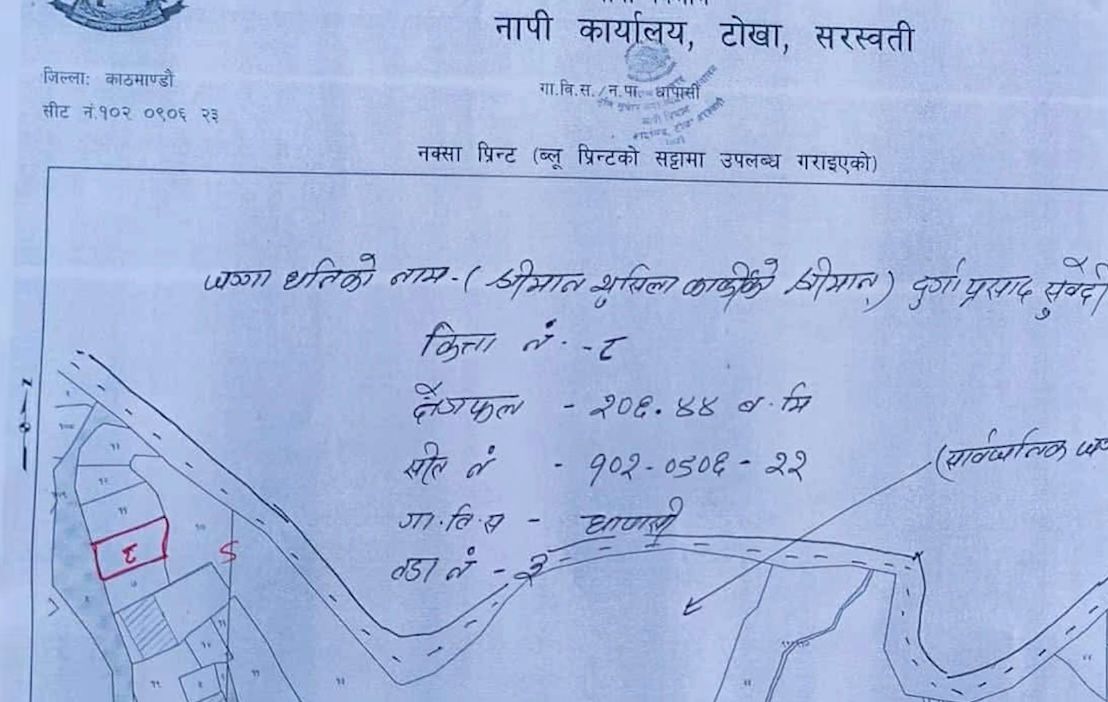 नापी कार्यालय, टोखा, सरस्वती
जिल्ला: काठमाण्डौ
गा.वि.स./न.पा. धापासी
सीट नं.१०२ ०९०६ २३
नक्सा प्रिन्ट (ब्लू प्रिन्टको सट्टामा उपलब्ध गराइएको)
जग्गा धनिको नाम - ( श्रीमान सुसिला कार्कीको श्रीमान ) दुर्गा प्रसाद सुवेदी
कित्ता नं. - ८
क्षेत्रफल - २०६.४४ व.मि
सीट नं - १०२-०९०६-२२
(सार्वजनिक
गा.वि.स - धापासी
वडा नं - ३
८